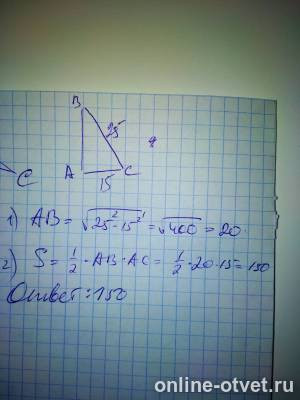 B
25
A
15
C
C
1) AB = √25² - 15² = √400 = 20.
2) S = 1/2 · AB · AC = 1/2 · 20 · 15 = 150
Ответ: 150
online-otvet.ru